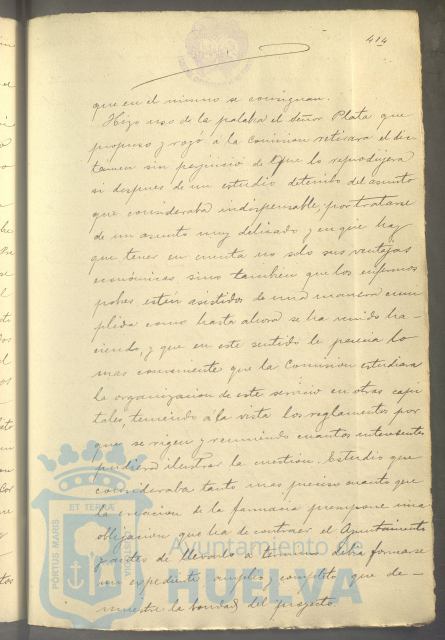 414
que en el mismo se consignan.
Hizo uso de la palabra el señor Plata que
propuso y rogó á la Comision retirara el dic-
támen sin perjuicio de que lo reprodujera
si despues de un estudio detenido del asunto
que consideraba indispensable, por tratarse
de un asunto muy delicado y en que hay
que tener en cuenta no solo sus ventajas
económicas sino tambien que los enfermos
pobres estén asistidos de una manera cum-
plida como hasta ahora se ha venido ha-
ciendo, y que en este sentido le parecia lo
mas conveniente que la Comision estudiara
la organizacion de este servicio en otras capi-
tales, teniendo á la vista los reglamentos por
que se rigen y reuniendo cuantos antecedentes
pudiera ilustrar la cuestion. Estudio que
consideraba tanto mas preciso cuanto que
la creacion de la farmacia presupone una
obligacion que ha de contraer el Ayuntamiento
y antes de llevarlo á término debia formarse
un expediente amplio y completo que de-
muestre la bondad del proyecto.
PORTUS MARIS
ET TERRÆ
Ayuntamiento de
HUELVA